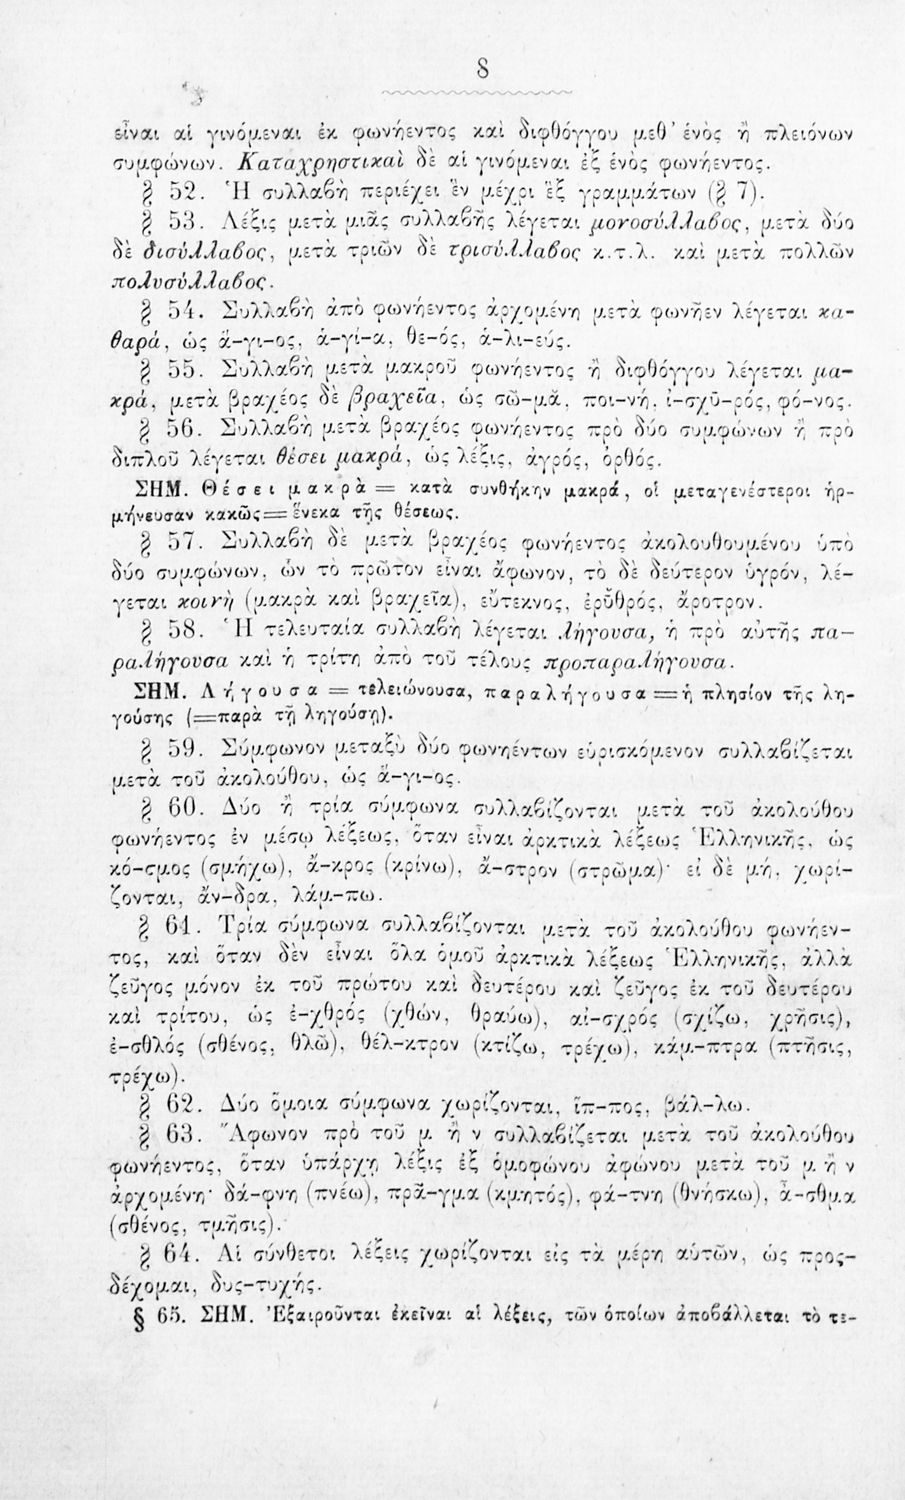 8
εἶναι αἱ γινόμεναι ἐκ φωνήεντος καὶ διφθόγγου μεθ᾽ ἑνὸς ἢ πλειόνων
συμφώνων. Καταχρηστικαὶ δὲ αἱ γινόμεναι ἐξ ἑνὸς φωνήεντος.
§ 52. Ἡ συλλαβὴ περιέχει ἓν μέχρι ἓξ γραμμάτων (§ 7).
§ 53. Λέξις μετὰ μιᾶς συλλαβῆς λέγεται μονοσύλλαβος, μετὰ δύο
δὲ δισύλλαβος, μετὰ τριῶν δὲ τρισύλλαβος κ.τ.λ. καὶ μετὰ πολλῶν
πολυσύλλαβος.
§ 54. Συλλαβὴ ἀπὸ φωνήεντος ἀρχομένη μετὰ φωνῆεν λέγεται κα-
θαρά, ὡς ἅ-γι-ος, ἁ-γί-α, θε-ός, ἁ-λι-εύς.
§ 55. Συλλαβὴ μετὰ μακροῦ φωνήεντος ἢ διφθόγγου λέγεται μα-
κρά, μετὰ βραχέος δὲ βραχεῖα, ὡς σῶ-μᾰ, ποι-νή, ἰ-σχῡ-ρός, φό-νος.
§ 56. Συλλαβὴ μετὰ βραχέος φωνήεντος πρὸ δύο συμφώνων ἢ πρὸ
διπλοῦ λέγεται θέσει μακρά, ὡς λέξις, ἀγρός, ὀρθός.
ΣΗΜ. Θέσει μακρὰ = κατὰ συνθήκην μακρά, οἱ μεταγενέστεροι ἡρ-
μήνευσαν κακῶς = ἕνεκα τῆς θέσεως.
§ 57. Συλλαβὴ δὲ μετὰ βραχέος φωνήεντος ἀκολουθουμένου ὑπὸ
δύο συμφώνων, ὧν τὸ πρῶτον εἶναι ἄφωνον, τὸ δὲ δεύτερον ὑγρόν, λέ-
γεται κοινὴ (μακρὰ καὶ βραχεῖα), εὔτεκνος, ἐρῠθρός, ἄροτρον.
§ 58. Ἡ τελευταία συλλαβὴ λέγεται λήγουσα, ἡ πρὸ αὐτῆς πα-
ραλήγουσα καὶ ἡ τρίτη ἀπὸ τοῦ τέλους προπαραλήγουσα.
ΣΗΜ. Λήγουσα = τελειώνουσα, παραλήγουσα = ἡ πλησίον τῆς λη-
γούσης (=παρὰ τῇ ληγούσῃ).
§ 59. Σύμφωνον μεταξὺ δύο φωνηέντων εὑρισκόμενον συλλαβίζεται
μετὰ τοῦ ἀκολούθου, ὡς ἅ-γι-ος.
§ 60. Δύο ἢ τρία σύμφωνα συλλαβίζονται μετὰ τοῦ ἀκολούθου
φωνήεντος ἐν μέσῳ λέξεως, ὅταν εἶναι ἀρκτικὰ λέξεως Ἑλληνικῆς, ὡς
κό-σμος (σμήχω), ἄ-κρος (κρίνω), ἄ-στρον (στρῶμα)· εἰ δὲ μή, χωρί-
ζονται, ἄν-δρα, λάμ-πω.
§ 61. Τρία σύμφωνα συλλαβίζονται μετὰ τοῦ ἀκολούθου φωνήεν-
τος, καὶ ὅταν δὲν εἶναι ὅλα ὁμοῦ ἀρκτικὰ λέξεως Ἑλληνικῆς, ἀλλὰ
ζεῦγος μόνον ἐκ τοῦ πρώτου καὶ δευτέρου καὶ ζεῦγος ἐκ τοῦ δευτέρου
καὶ τρίτου, ὡς ἐ-χθρός (χθών, θραύω), αἰ-σχρός (σχίζω, χρῆσις),
ἐ-σθλός (σθένος, θλῶ), θέλ-κτρον (κτίζω, τρέχω), κάμ-πτρα (πτῆσις,
τρέχω).
§ 62. Δύο ὅμοια σύμφωνα χωρίζονται, ἵπ-πος, βάλ-λω.
§ 63. Ἄφωνον πρὸ τοῦ μ ἢ ν συλλαβίζεται μετὰ τοῦ ἀκολούθου
φωνήεντος, ὅταν ὑπάρχῃ λέξις ἐξ ὁμοφώνου ἀφώνου μετὰ τοῦ μ ἢ ν
ἀρχομένη· δά-φνη (πνέω), πρᾶ-γμα (κμητός), φά-τνη (θνήσκω), ἆ-σθμα
(σθένος, τμῆσις).
§ 64. Αἱ σύνθετοι λέξεις χωρίζονται εἰς τὰ μέρη αὑτῶν, ὡς προς-
δέχομαι, δυς-τυχής.
§ 65. ΣΗΜ. Ἐξαιροῦνται ἐκεῖναι αἱ λέξεις, τῶν ὁποίων ἀποβάλλεται τὸ τε-